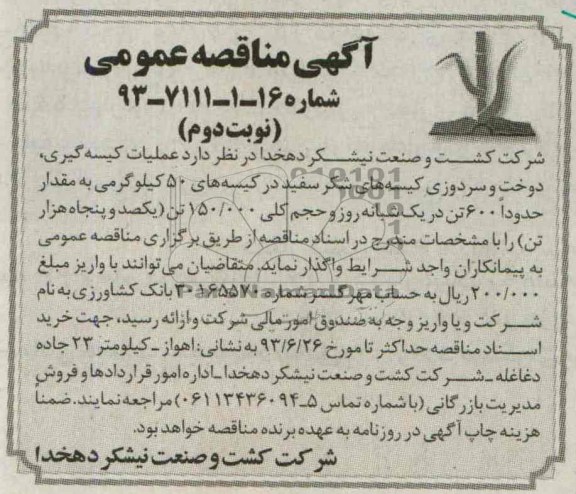 آگهی مناقصه عمومی
شماره ۱۶-۱-۷۱۱۱-۹۳
(نوبت دوم)
شرکت کشت و صنعت نیشکر دهخدا در نظر دارد عملیات کیسه گیری،
دوخت و سردوزی کیسه‌های شکر سفید در کیسه‌های ۵۰ کیلوگرمی به مقدار
حدوداً ۶۰۰ تن در یک شبانه روز و حجم کلی ۱۵۰/۰۰۰ تن (یکصد و پنجاه هزار
تن) را با مشخصات مندرج در اسناد مناقصه از طریق برگزاری مناقصه عمومی
به پیمانکاران واجد شرایط واگذار نماید. متقاضیان می‌توانند با واریز مبلغ
۲۰۰/۰۰۰ ریال به حساب مهر گستر شماره ۳۰۱۶۵۵۷۰ بانک کشاورزی به نام
شرکت و یا واریز وجه به صندوق امور مالی شرکت و ارائه رسید، جهت خرید
اسناد مناقصه حداکثر تا مورخ ۹۳/۶/۲۶ به نشانی: اهواز - کیلومتر ۲۳ جاده
دغاغله - شرکت کشت و صنعت نیشکر دهخدا - اداره امور قراردادها و فروش
مدیریت بازرگانی (با شماره تماس ۵-۰۶۱۱۳۴۳۶۰۹۴) مراجعه نمایند. ضمناً
هزینه چاپ آگهی در روزنامه به عهده برنده مناقصه خواهد بود.
شرکت کشت و صنعت نیشکر دهخدا